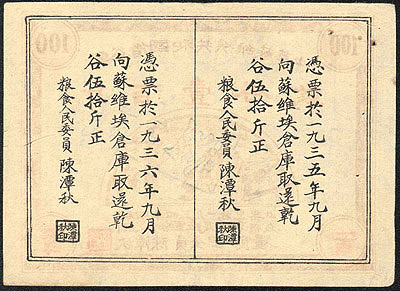 憑票於一九三五年九月
向蘇維埃倉庫取還乾
谷伍拾斤正
粮食人民委員 陳潭秋
陳潭
秋印
憑票於一九三六年九月
向蘇維埃倉庫取還乾
谷伍拾斤正
粮食人民委員 陳潭秋
陳潭
秋印
100
100